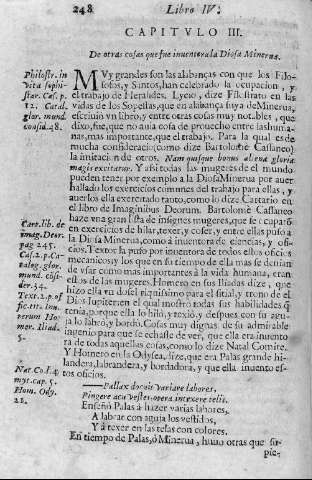 248 Libro IV:
CAPITVLO III.
De otras cosas que fue inuentora la Diosa Minerua.
MVy grandes son las alabanças con que los Filo-
sofos, y Santos, han celebrado la ocupacion, y
el trabajo de Heraldes, Lyceo, dize Filostrato en las
vidas de los Sopestas, que en alabança suya de Minerua,
escriuiò vn libro, y entre otras cosas muy notables, que
dixo, fue, que no auia cosa de prouecho entre las huma-
nas, mas importante, que el trabajo. Para la qual es de
mucha consideracion (como dize Bartolomè Cassaneo)
la imitacion de otros. Nam quisque bonus aliena gloria
magis excitatur. Y assi todas las mugeres del mundo
pueden tener por exemplo a la Diosa Minerua por auer
hallado los exercicios comunes del trabajo para ellas, y
auerlos ella exercitado tanto, como lo dize Cartario en
el libro de Imaginibus Deorum. Bartolomè Cassaneo
haze vna gran lista de insignes mugeres, que se ocuparō
en exercicios de hilar, texer, y coser, y entre ellas puso a
la Diosa Minerua, como a inuentora de ciencias, y ofi-
cios. Textor la puso por inuentora de todos los oficios
mecanicos; y los que en su tiempo de ella mas se deuian
de vsar como mas importantes à la vida humana, eran
estos de las mugeres. Homero en sus Iliadas dize, que
hizo ella vn dosel riquissimo para el sitial, y trono de el
Dios Iupiter: en el qual mostrò todas sus habilidades q̃
tenia, porque ella lo hilò, y texiò, y despues con su agu-
ja lo labrò, y bordò. Cosas muy dignas de su admirable
ingenio para que se echasse de ver, que ella era inuento
ra de todas aquellas cosas, como lo dize Natal Comite.
Y Homero en la Odysea, dize, que era Palas grande hi-
landera, labrandera, y bordadora, y que ella inuentò es-
tos oficios.
—Pallax docuis variare labores,
Pingere acu vestes, opera intexere telis.
Enseñò Palas à hazer varias labores,
A labrar con aguja los vestidos,
Y à texer en las telas con colores.
En tiempo de Palas, ò Minerua, huuo otras que su-
pie-
Philostr. in
vita sophi-
star. Cas. p.
12. Catal.
glor. mund.
consid. 28.
Cart. lib. de
imag. Deor.
pag 245.
Cas. 2. p. Ca-
talog. glor.
mund. cōsi-
der. 34.
Text. 2. p. of
fic. tit. inu-
torum Ho-
mer. Iliad.
5.
Nat. Co. l. 4
myt. cap. 5.
Hom. Ody.
22.